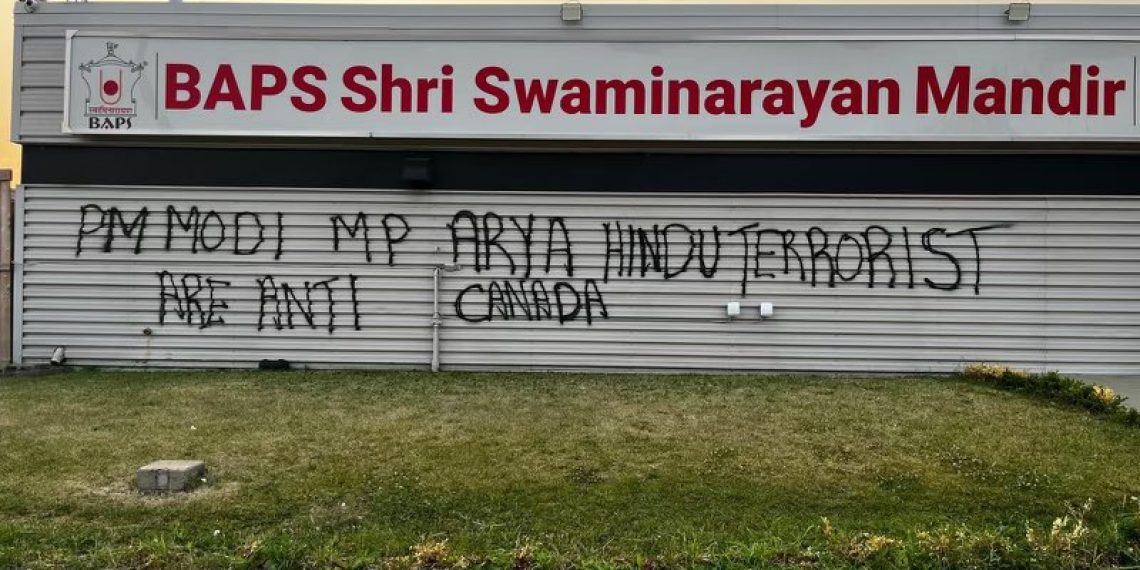 स्वामिनारायण
BAPS
BAPS Shri Swaminarayan Mandir
PM MODI MP ARYA HINDU TERRORIST
ARE ANTI CANADA